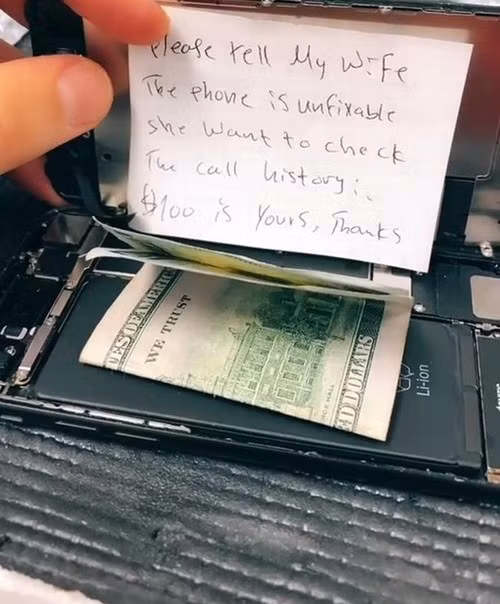 Please tell My Wife
The phone is unfixable
she want to check
The call history:.
$100 is Yours, Thanks
ES OF AMERIC
WE TRUST
D DOLLARS
Li-ion